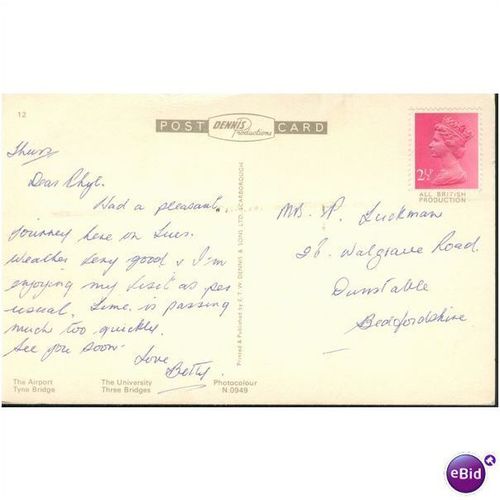 12
POST DENNIS Productions CARD
Thurs
Dear Phyl.
Had a pleasant
journey here on Tues.
Weather very good & I'm
enjoying my visit as per
usual. Time is passing
much too quickly.
See you soon
Love
Betty.
The Airport
Tyne Bridge
The University
Three Bridges
Photocolour
N.0949
Printed & Published by E.T.W. DENNIS & SONS LTD. SCARBOROUGH
2½
ALL BRITISH
PRODUCTION
Mrs P. Luckman
26 Walgrave Road.
Dunstable
Bedfordshire
eBid